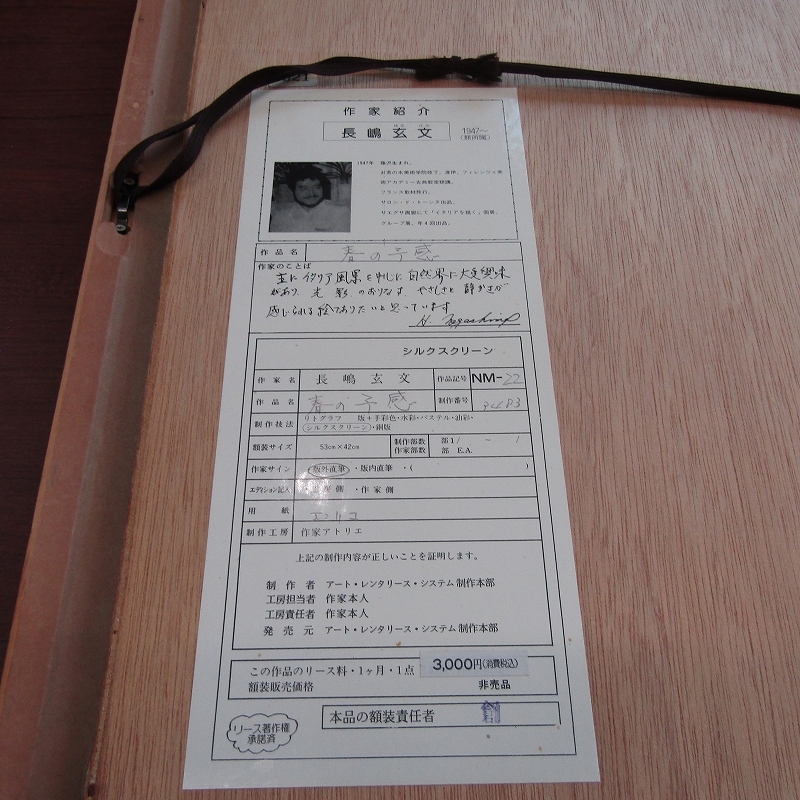 作家紹介
長嶋玄文
1947〜
1947年 藤沢生まれ。
お茶の水美術学院修了。渡伊、フィレンツェ美
術アカデミー古典版室修講。
フランス取材旅行。
サロン・ド・トーンヌ出品。
サエグサ画廊にて「イタリアを描く」個展。
グループ展、年4回出品。
作品名 春の予感
作家のことば
主にイタリア風景を中心に自然界に大変興味
があり 光 影 のおりなす やさしさと 静かさが
感じられる絵でありたいと思っています
H. Nagashima
シルクスクリーン
作家名 長嶋玄文 作品記号 NM-22
作品名 春の予感 制作番号
制作技法 リトグラフ 版+手彩色・水彩・パステル・油彩・
シルクスクリーン・銅版
額装サイズ 53cm×42cm 制作部数 部1/ 〜 /
作家部数 部 E.A.
作家サイン 版外直筆・版内直筆・( )
エディション記入 側・作家側
用紙
制作工房 作家アトリエ
上記の制作内容が正しいことを証明します。
制作者 アート・レンタリース・システム制作本部
工房担当者 作家本人
工房責任者 作家本人
発売元 アート・レンタリース・システム制作本部
この作品のリース料・1ヶ月・1点 3,000円(消費税込)
額装販売価格 非売品
本品の額装責任者
リース著作権
承諾済